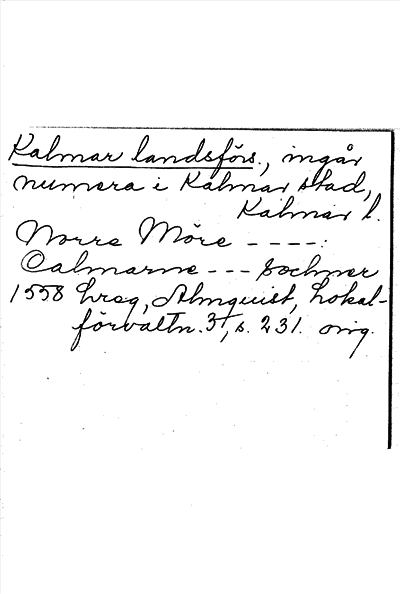 Kalmar landsförs., ingår
numera i Kalmar stad,
Kalmar l.
Norre Möre ----:
Calmarne --- sochner
1558 hreg, Almquist, Lokal-
förvaltn. 3, s. 231. orig.